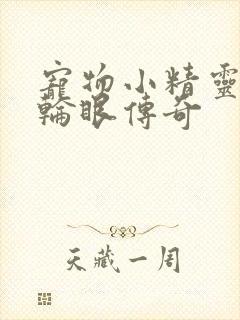 寵物小精靈
輪眼傳奇
天藏一周